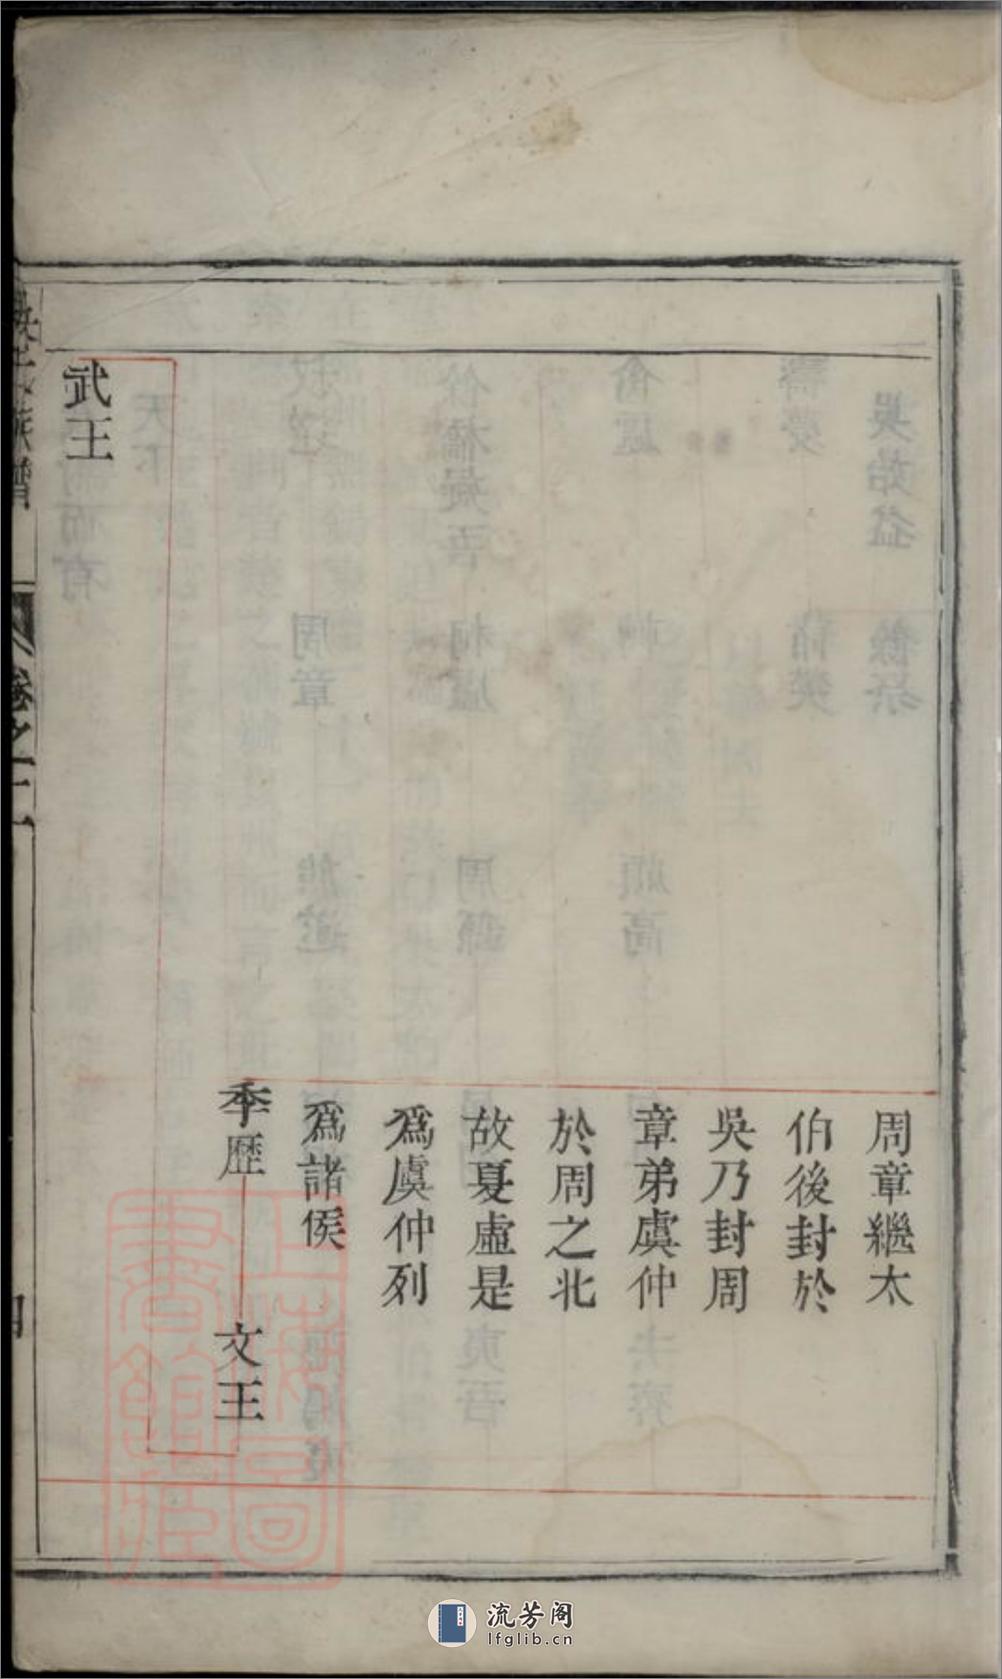 周章繼太
伯後封於
吳乃封周
章弟虞仲
於周之北
故夏虛是
爲虞仲列
爲諸侯
季歷
文王
武王
族譜
卷之二
四
上海圖書館藏
流芳阁
lfglib.cn